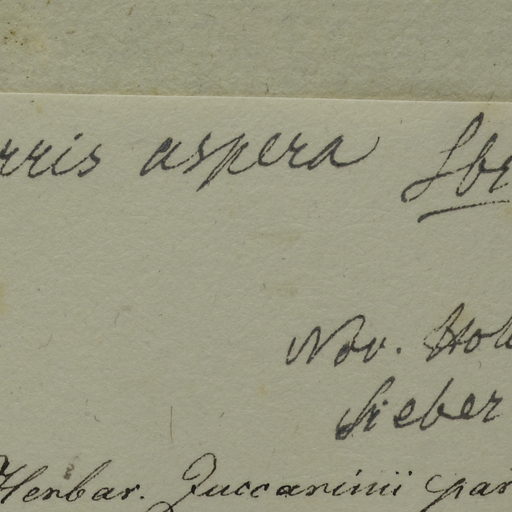 rris aspera Sbr
Nov. Holl
Sieber
Herbar. Zuccarinii par